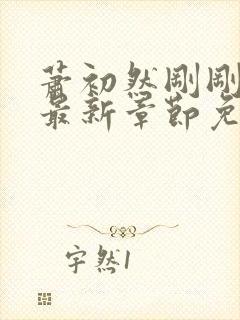 萧初然刚刚
最新章节免
宇然1